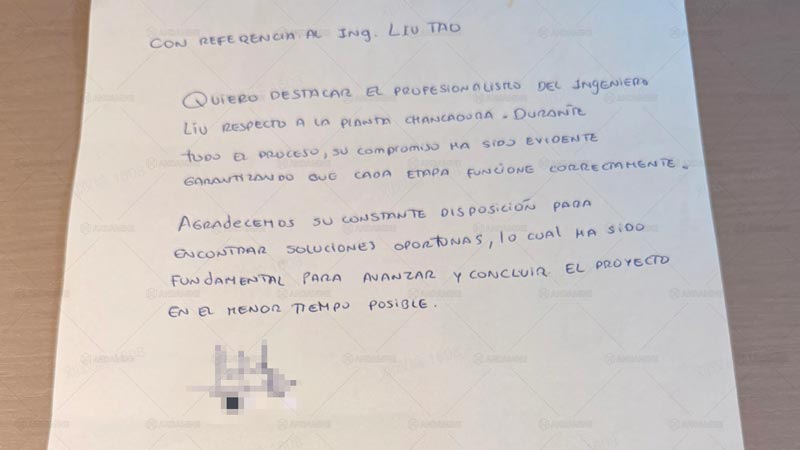 CON REFERENCIA AL Ing. LIU TAO
QUIERO DESTACAR EL PROFESIONALISMO DEL INGENIERO
LIU RESPECTO A LA PLANTA CHANCADORA. DURANTE
TODO EL PROCESO, SU COMPROMISO HA SIDO EVIDENTE
GARANTIZANDO QUE CADA ETAPA FUNCIONE CORRECTAMENTE.
AGRADECEMOS SU CONSTANTE DISPOSICIÓN PARA
ENCONTRAR SOLUCIONES OPORTUNAS, lo CUAL HA SIDO
FUNDAMENTAL PARA AVANZAR Y CONCLUIR EL PROYECTO
EN EL MENOR TIEMPO POSIBLE.